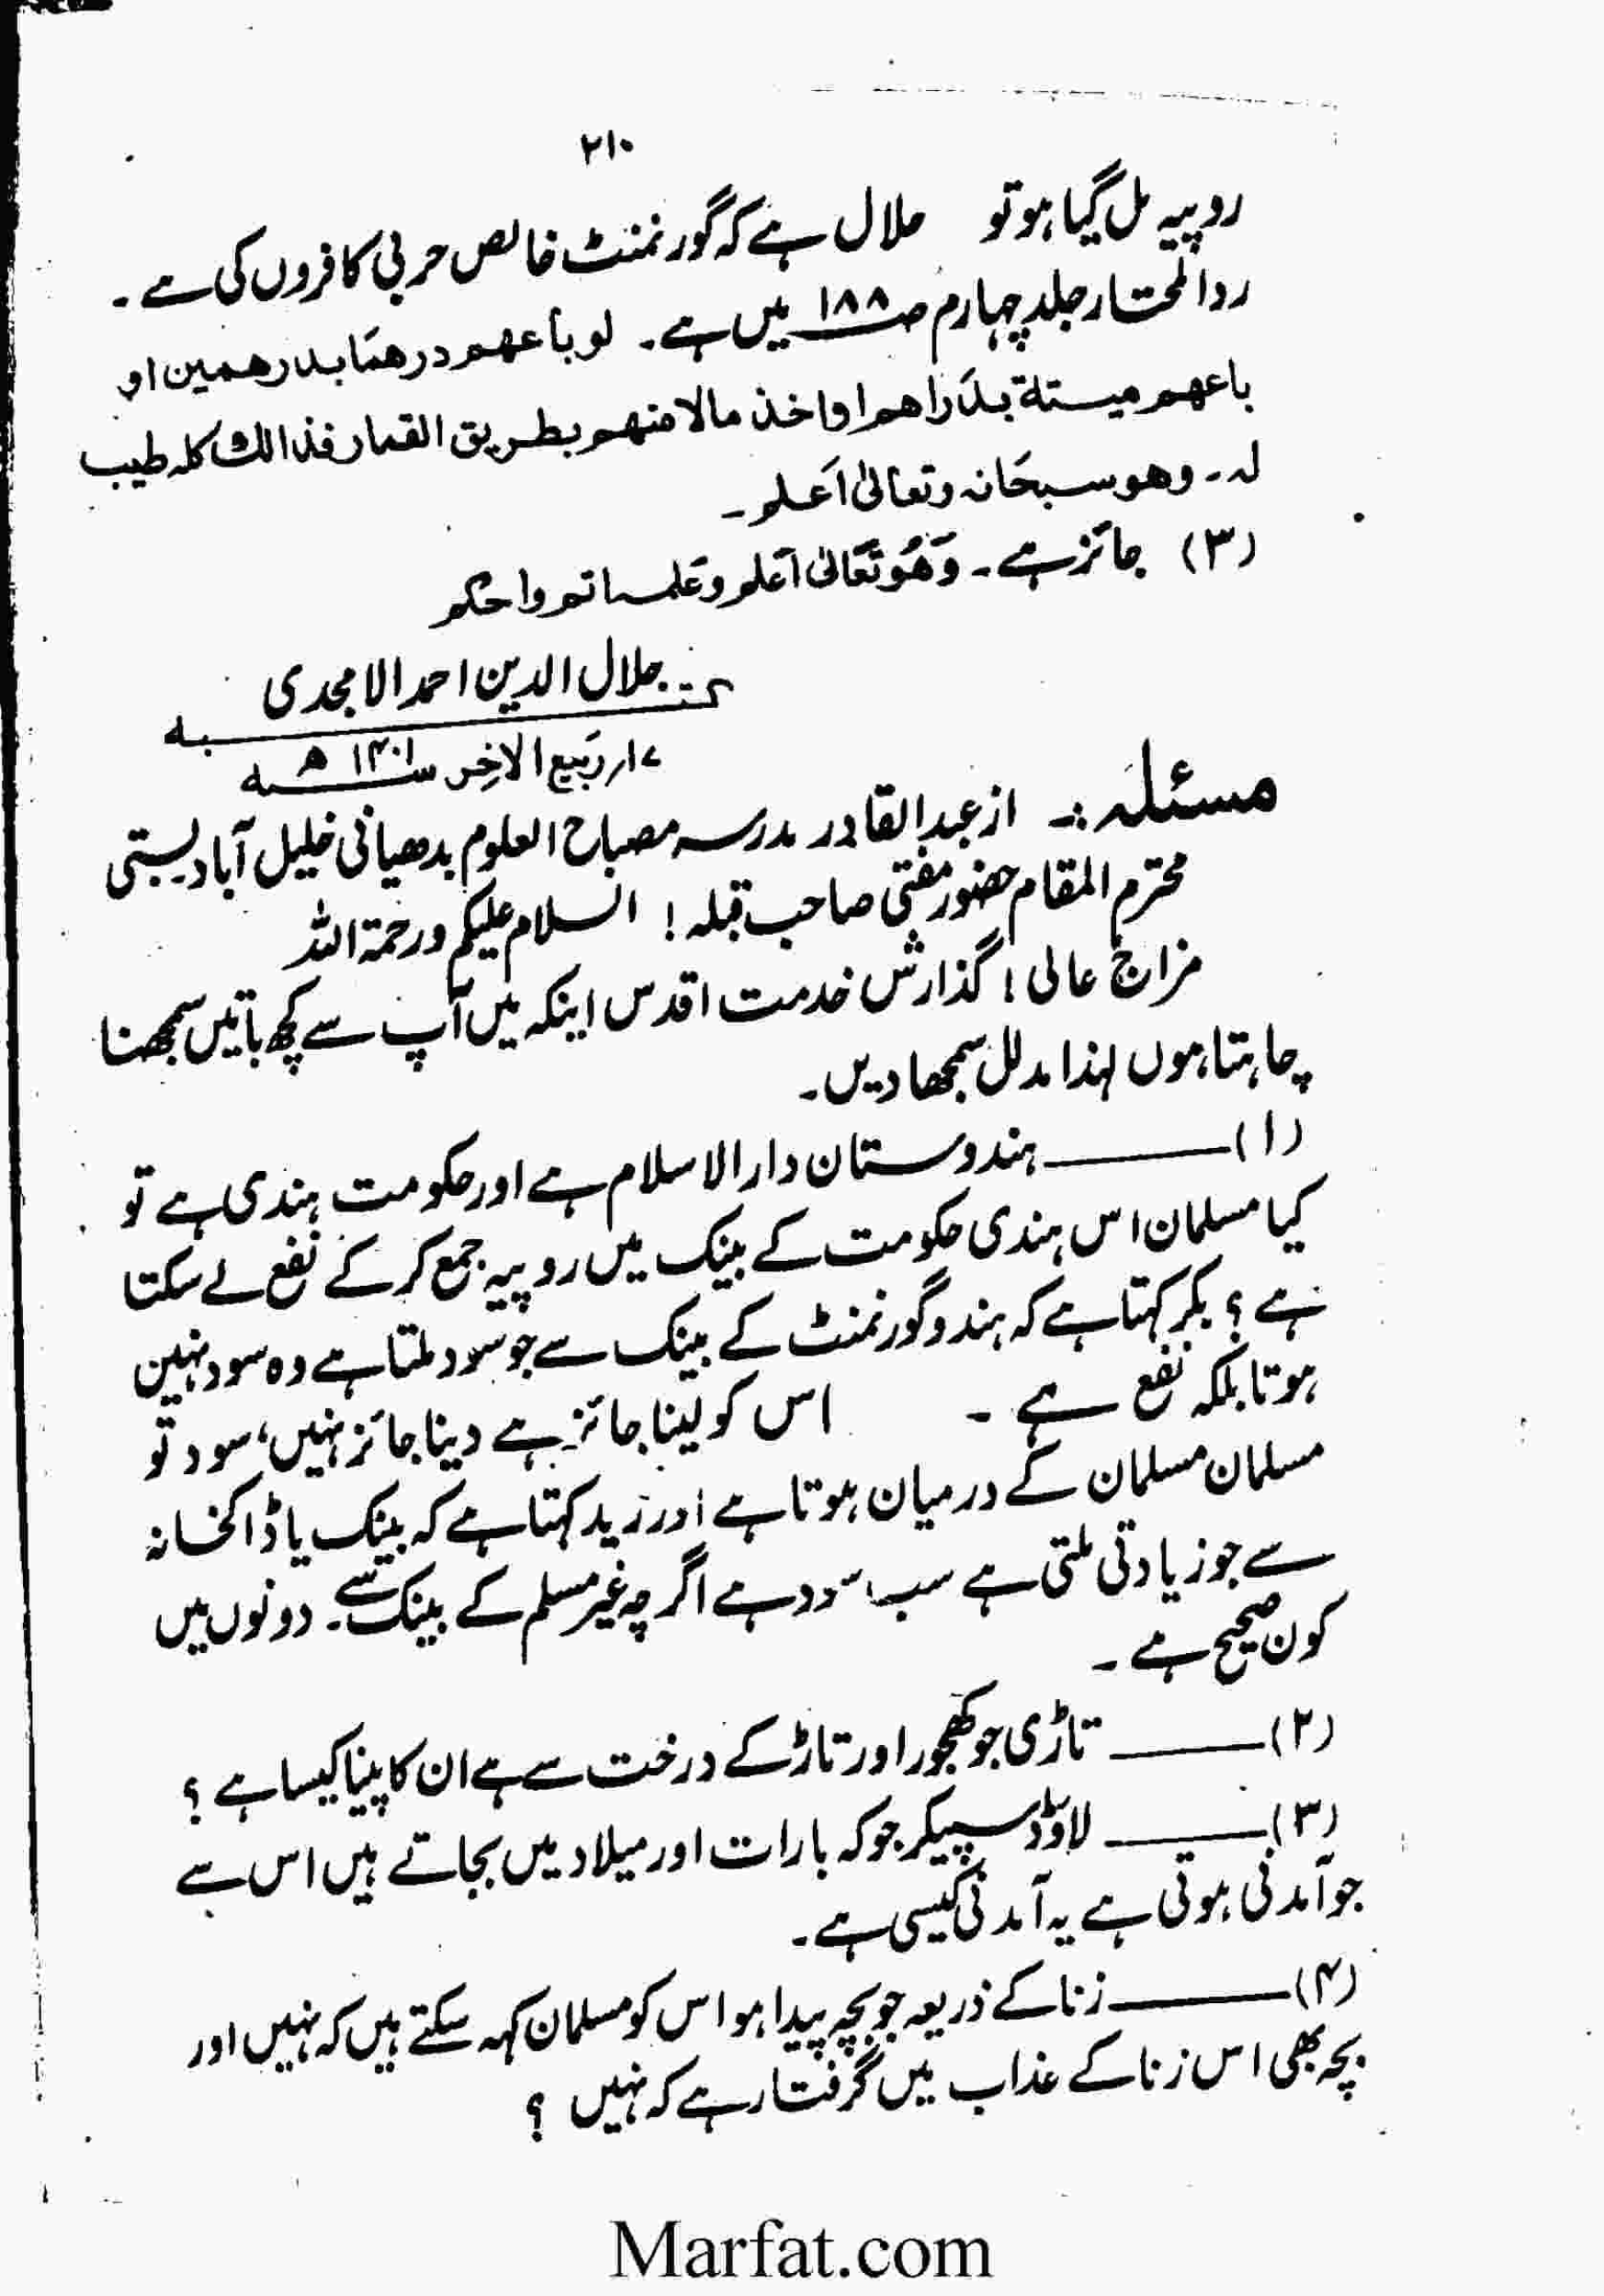 ۲۱۰
روپیہ مل گیا ہو تو حلال ہے کہ گورنمنٹ خالص حربی کافروں کی ہے ۔
ردالمحتار جلد چہارم صـ۱۸۸ میں ہے ۔ لو باعهم درهمًا بدرهمین او
باعهم میتة بدراهم او اخذ مالا منهم بطریق القمار فذالك کله طیب
له ۔ وهو سبحَانه وتعالیٰ اَعلم ۔
(۳) جائز ہے ۔ وَهُوَ تعَالیٰ اَعلم وعَلمه اتم واحکم
کتبہ جلال الدین احمد الامجدی
۱۷؍ ربیع الاخر سنہ ۱۴۰۱ھ
مسئلہ :۔ از عبدالقادر مدرسہ مصباح العلوم بدھیانی خلیل آباد بستی
محترم المقام حضور مفتی صاحب قبلہ ! السلام علیکم ورحمۃ اللہ
مزاج عالی ! گذارش خدمت اقدس اینکہ میں آپ سے کچھ باتیں سمجھنا
چاہتا ہوں لہذا مدلل سمجھا دیں ۔
(۱) ـــــــ ہندوستان دارالاسلام ہے اور حکومت ہندی ہے تو
کیا مسلمان اس ہندی حکومت کے بینک میں روپیہ جمع کرکے نفع لے سکتا
ہے ؟ بکر کہتا ہے کہ ہندو گورنمنٹ کے بینک سے جو سود ملتا ہے وہ سود نہیں
ہوتا بلکہ نفع ہے ۔ اس کو لینا جائز ہے دینا جائز نہیں، سود تو
مسلمان مسلمان کے درمیان ہوتا ہے اور زید کہتا ہے کہ بینک یا ڈاکخانہ
سے جو زیادتی ملتی ہے سب سود ہے اگرچہ غیر مسلم کے بینک سے ۔ دونوں میں
کون صحیح ہے ۔
(۲) ـــــــ تاڑی جو کھجور اور تاڑ کے درخت سے ہے ان کا پینا کیسا ہے ؟
(۳) ـــــــ لاؤڈ سپیکر جو کہ بارات اور میلاد میں بجاتے ہیں اس سے
جو آمدنی ہوتی ہے یہ آمدنی کیسی ہے ۔
(۴) ـــــــ زنا کے ذریعہ جو بچہ پیدا ہو اس کو مسلمان کہہ سکتے ہیں کہ نہیں اور
بچہ بھی اس زنا کے عذاب میں گرفتار ہے کہ نہیں ؟
Marfat.com